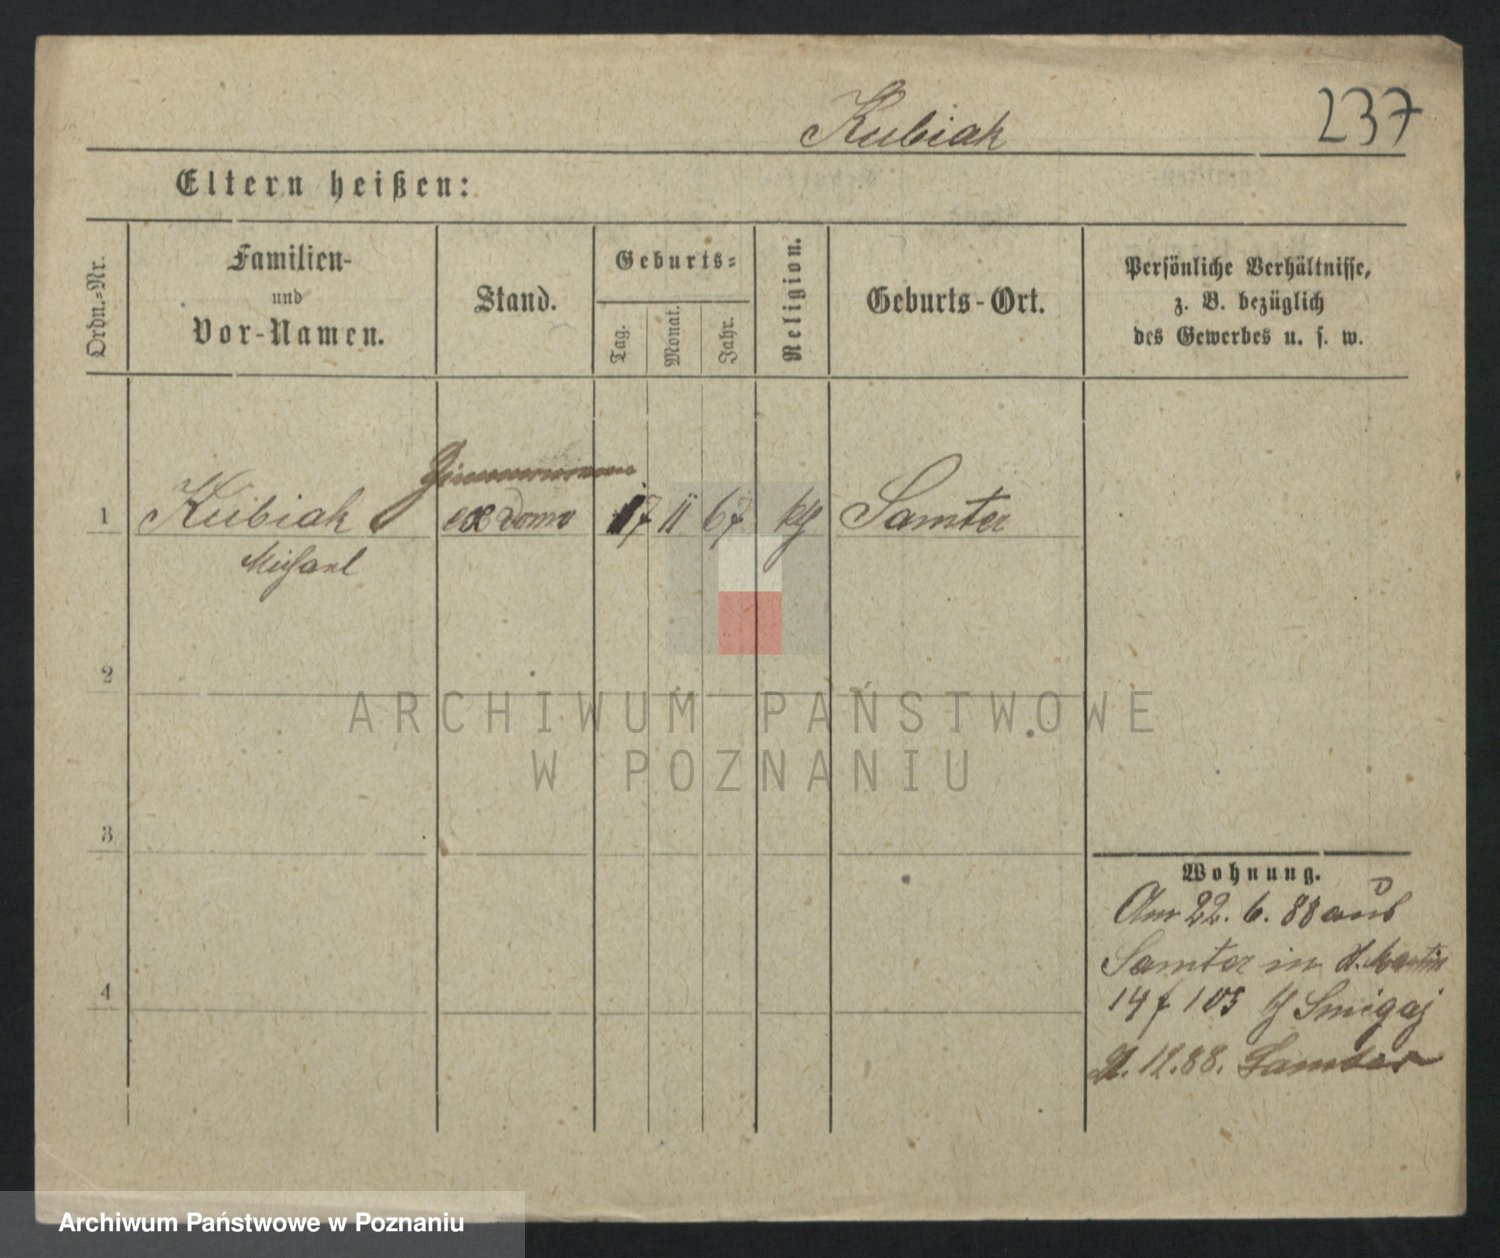 Kubiak 237
Eltern heißen:
Ordn.-Nr.
Familien-
und
Vor-Namen.
Stand.
Geburts-
Tag.
Monat.
Jahr.
Religion.
Geburts-Ort.
Persönliche Verhältnisse,
z. B. bezüglich
des Gewerbes u. s. w.
Zimmermann
1 Kubiak 17 II 67 kg Samter
Michael
2
3
4
Wohnung.
Am 22. 6. 88 aus
Samter in St. Martin
14 f 105 Smigaj
12.88. Samter
ARCHIWUM PAŃSTWOWE
W POZNANIU
Archiwum Państwowe w Poznaniu